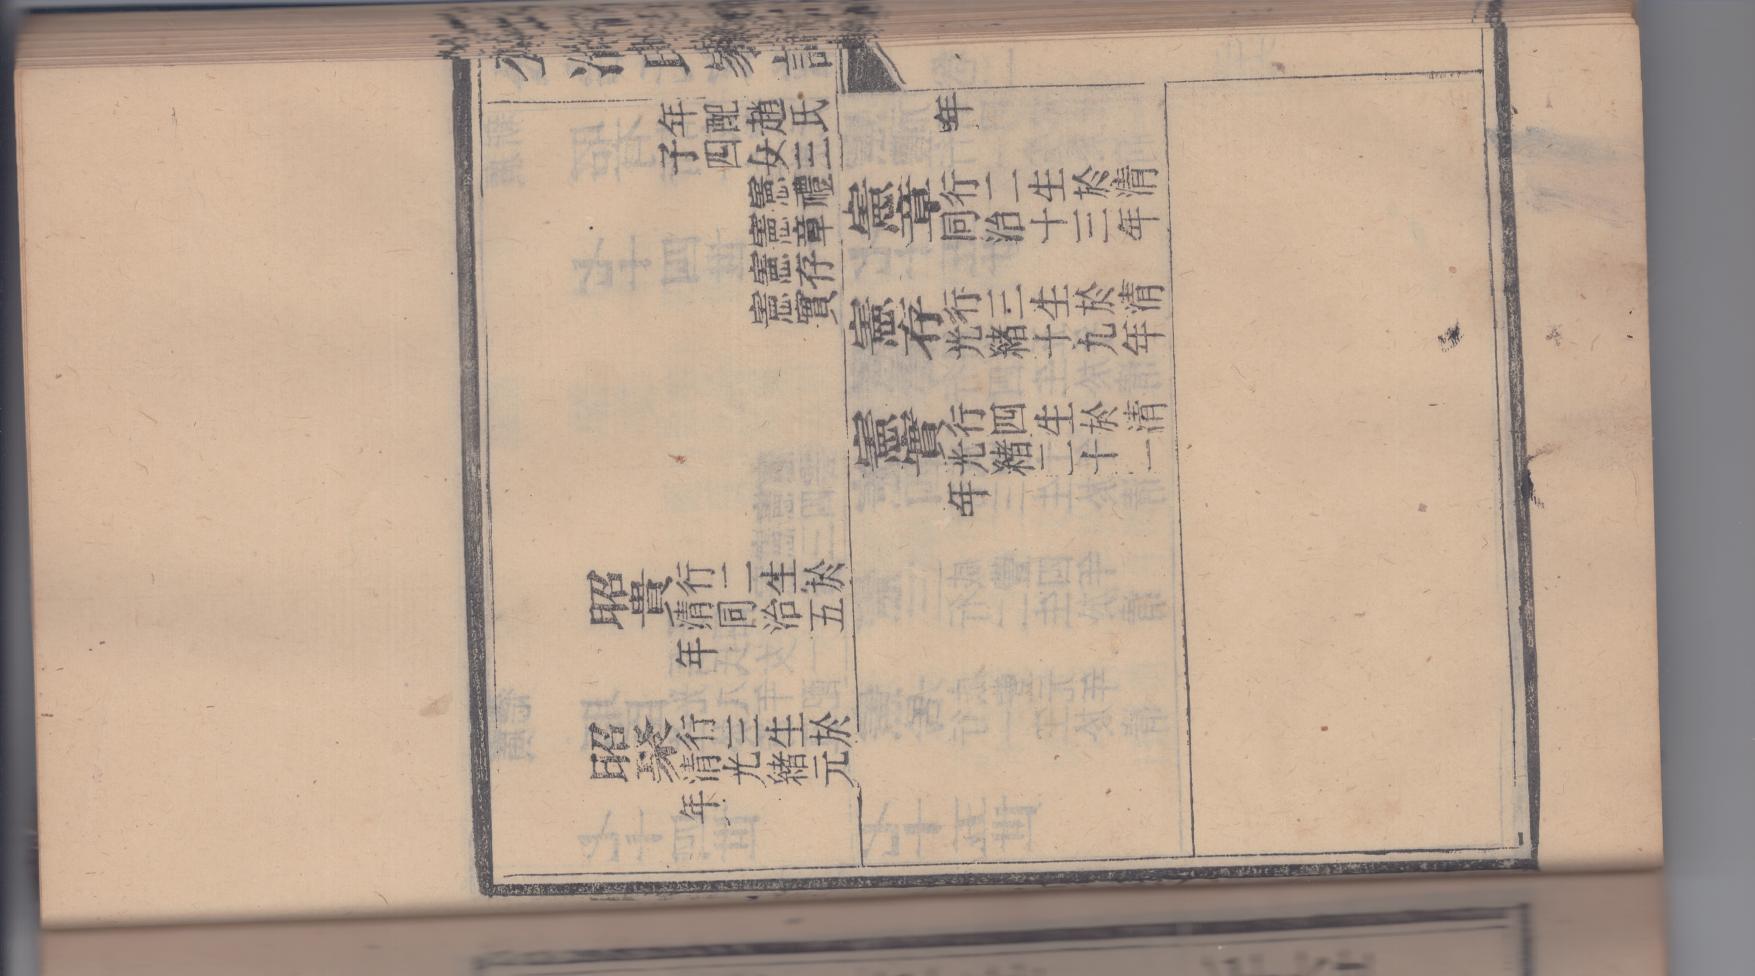 公冶氏家譜
年配趙氏
子四女三
憲禮
憲章
憲存
憲實
昭貴 行二生於
清同治五
年
昭聚 行三生於
清光緒元
年
年
憲章 行二生於清
同治十三年
憲存 行三生於清
光緒十九年
憲實 行四生於清
光緒二十一
年